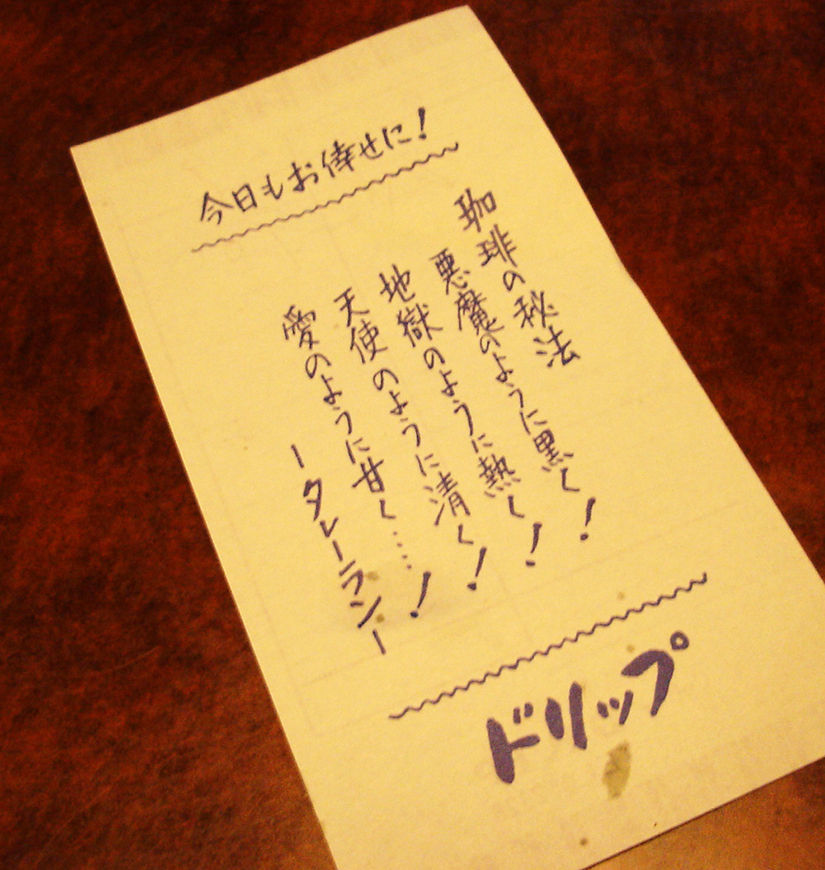 今日もお倖せに!
珈琲の秘法
悪魔のように黒く!
地獄のように熱く!
天使のように清く!
愛のように甘く……!
ータレーランー
ドリップ